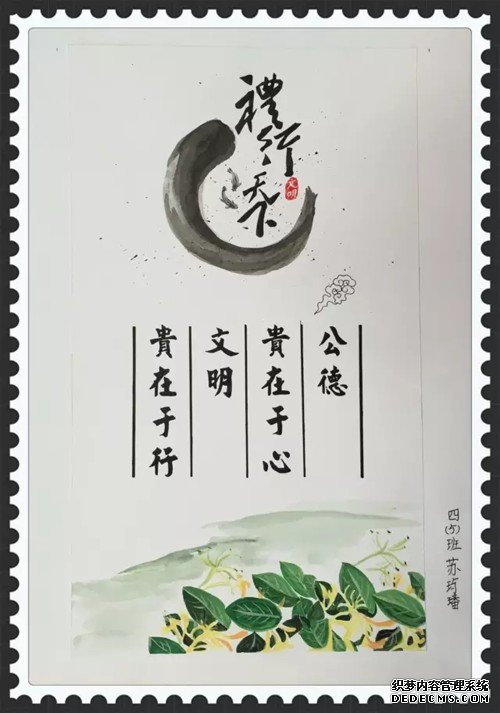 禮行天下
文明
公德
貴在于心
文明
貴在于行
四(5)班 苏
织梦内容管理系统
DEDECMS.COM